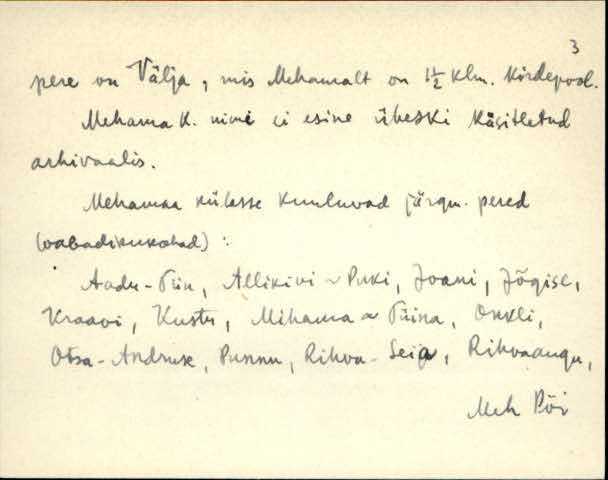 3
pere on Välja, mis Mehamalt on 1½ klm. kirdepool.
Mehama k. nimi ei esine üheski käsitletud
arhivaalis.
Mehamaa külasse kuuluvad järgm. pered
(vabadikukohad):
Aadu-Siin, Allikivi ~ Puki, Joani, Jõgise,
Kraavi, Kustu, Mihama ~ Siina, Onkli,
Otsa-Andruse, Punnu, Rihva-Seia, Rihvaaugu,
Meh Pöi